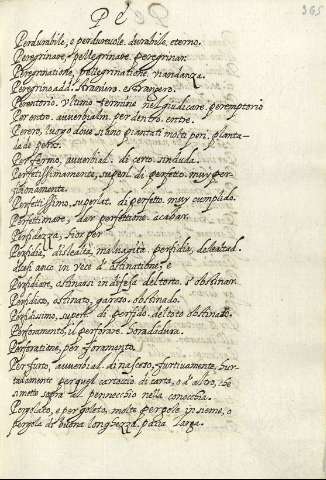 P e
365
Perdurabile, e perdureuole. durabile, eterno.
Peregrinare, pellegrinare. peregrinar.
Peregrinatione, pellegrinatione, viandanza.
Peregrino add. straniero. estranjero.
Perentorio. vltimo termine nel giudicare. peremptorio
Per entro. auuerbialm. per dentro. entre.
Pereto, luogo doue siano piantati molti peri. planta-
ua de peros.
Per fermo, auuerbial. di certo. sin duda.
Perfettissimamente, superl. di perfetto. muy per-
Perfettissimo, superlat. di perfetto. muy cumplido.
Perfettionare, dar perfettione. acabar.
Perfidezza, fior per
Perfidia, dislealtà, maluagità. perfidia, deslealtad.
dicesi anco in vece d'ostinatione, e
Perfidiare, ostinarsi in difesa del torto. obstinar
Perfidioso, ostinato, garoso. obstinado.
Perfidissimo, superl. di perfido. del todo obstinado.
Perforamento, il perforare. horadadura.
Perforatione, per foramento.
Per furto, auuerbial. di nascoso, furtiuamente, hur-
per quel cartoccio di carta, o d'altro, che
si mette sopra del pennecchio nella conocchia.
Pergolato, e pergoleto, molte pergole insieme, o
pergola di buona longhezza. parra larga.